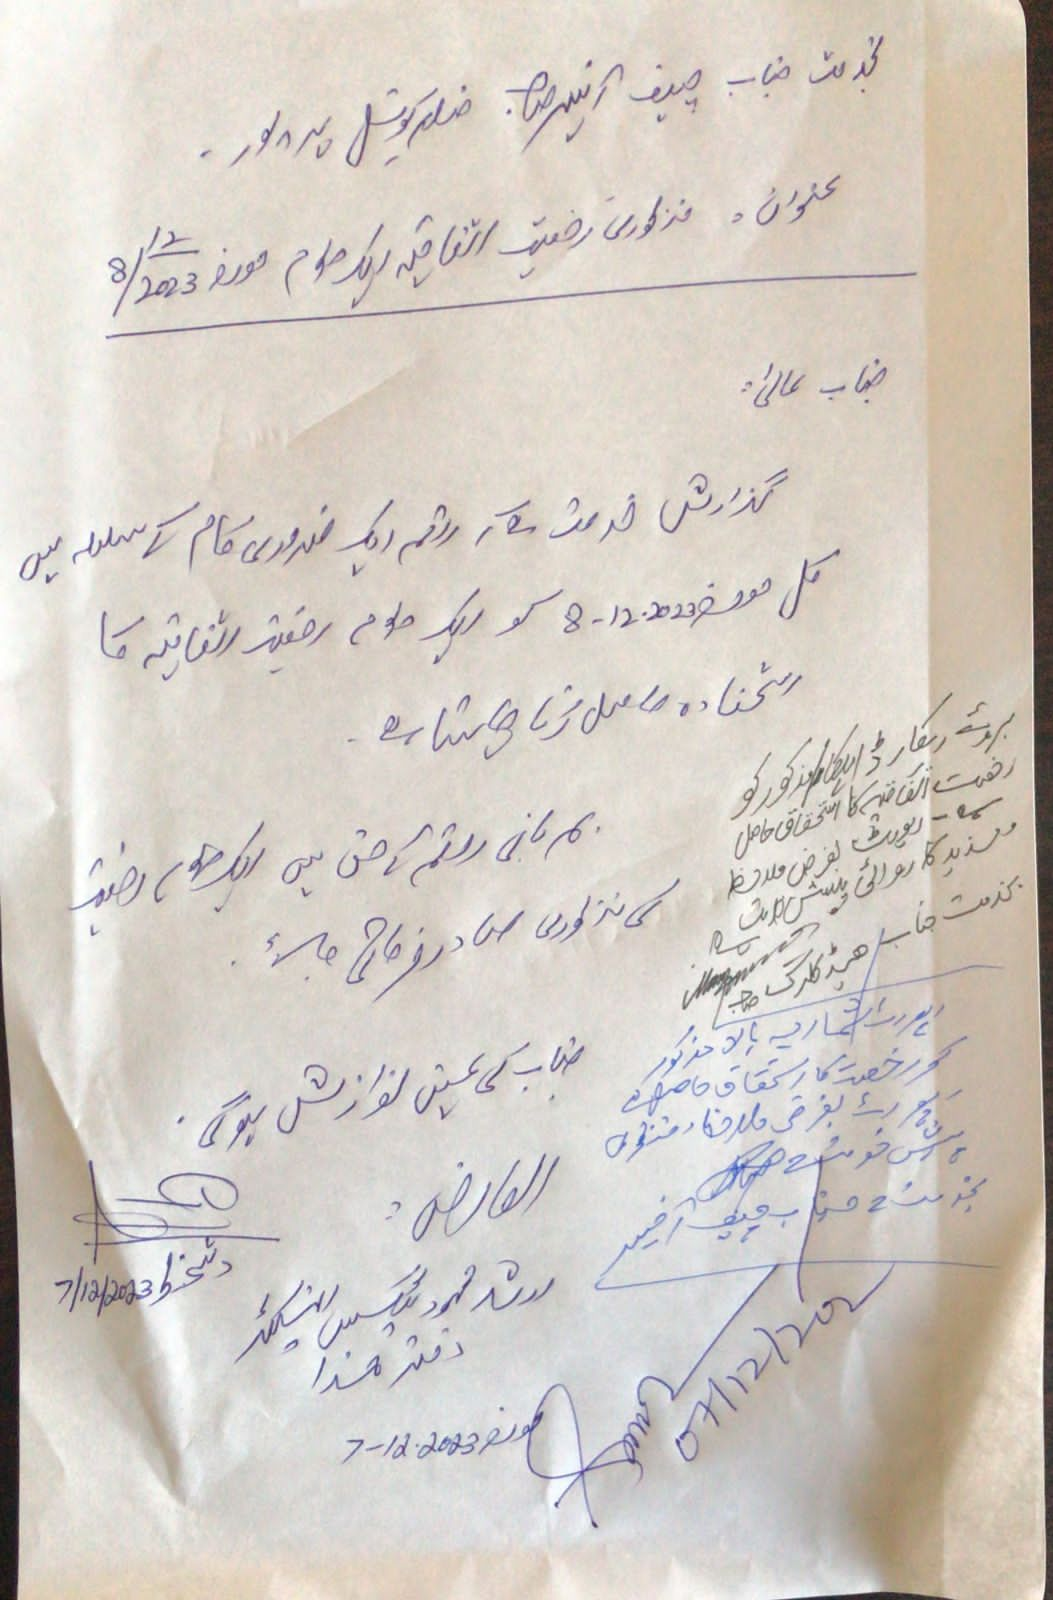 بخدمت جناب چیف آفیسر صاحب ضلع کونسل
عنوان : منظوری رخصت اتفاقیہ ایک یوم مورخہ 8/12/2023
جناب عالی:
گذارش خدمت ہے کہ راقم ایک ضروری کام کے سلسلہ میں
کل مورخہ 8-12-2023 کو ایک یوم رخصت اتفاقیہ کا
استفادہ حاصل کرنا چاہتا ہے۔
مہربانی راقم کے حق میں ایک یوم رخصت
کی منظوری صادر فرمائی جائے۔
جناب کی عین نوازش ہوگی۔
العارض:
ارشد محمود ٹیکس انسپکٹر
دفتر ھذا
مورخہ 7-12-2023
دستخط 7/12/2023
بروئے ریکارڈ اہلکار مذکور کو
رخصت اتفاقیہ کا استحقاق حاصل
ہے۔ رپورٹ بغرض ملاحظہ
و مزید کاروائی پیش خدمت
ہے
بخدمت جناب ھیڈ کلرک صاحب
رپورٹ اہلکار بالا مذکور
کو رخصت کا استحقاق حاصل ہے
رپورٹ بغرض ملاحظہ و منظوری
پیش خدمت ہے
بخدمت جناب چیف آفیسر
07/12/202